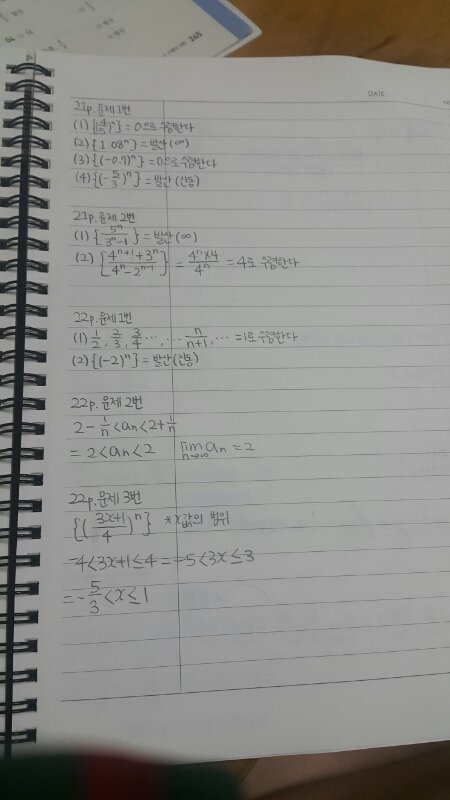 DATE.
21p. 문제 1번
(1) {(4/5)ⁿ} = 0으로 수렴한다
(2) {1.08ⁿ} = 발산 (∞)
(3) {(-0.7)ⁿ} = 0으로 수렴한다
(4) {(-5/3)ⁿ} = 발산 (진동)
21p. 문제 2번
(1) {5ⁿ/(3ⁿ-1)} = 발산 (∞)
(2) {(4ⁿ⁺¹+3ⁿ)/(4ⁿ-2ⁿ⁻¹)} = (4ⁿ×4)/4ⁿ = 4로 수렴한다
22p. 문제 1번
(1) 1/2, 2/3, 3/4 ⋯, ⋯ n/(n+1), ⋯ = 1로 수렴한다
(2) {(-2)ⁿ} = 발산 (진동)
22p. 문제 2번
2-1/n < aₙ < 2+1/n
= 2 < aₙ < 2 lim n→∞ aₙ = 2
22p. 문제 3번
{((3x+1)/4)ⁿ} *x값의 범위
-4<3x+1≤4 = -5<3x≤3
= -5/3<x≤1